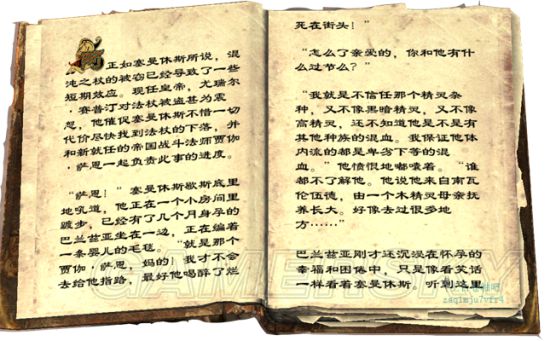 正如塞曼休斯所说，混
沌之杖的被窃已经导致了一些
短期效应。现任皇帝，尤瑞尔
·赛普汀对法杖被盗甚为震
怒，他催促塞曼休斯不惜一切
代价尽快找到法杖的下落，并
和新就任的帝国战斗法师贾伽
·萨恩一起负责此事的进度。
“萨恩！”塞曼休斯歇斯底里
地吼道，他正在一个小房间里
踱步，已经有了几个月身孕的
巴兰兹亚坐在一边，正在编着
一条婴儿的毛毯。“就是那个
贾伽·萨恩，妈的！我才不会
去给他指路，最好他喝醉了烂
死在街头！”
“怎么了亲爱的，你和他有什
么过节么？”
“我就是不信任那个精灵杂
种，又不像黑暗精灵，又不像
高精灵，还不知道他是不是有
其他种族的混血。我保证他体
内流的都是卑劣下等的混
血。”他愤恨地嘟囔着。“谁
都不了解他。他说他来自南瓦
伦伍德，由一个木精灵母亲抚
养长大。好像去过很多地
方……”
巴兰兹亚刚才还沉浸在怀孕的
幸福和困倦中，只是像看笑话
一样看着塞曼休斯。听到这里
GAMERSKY
zaqimju7vfr4